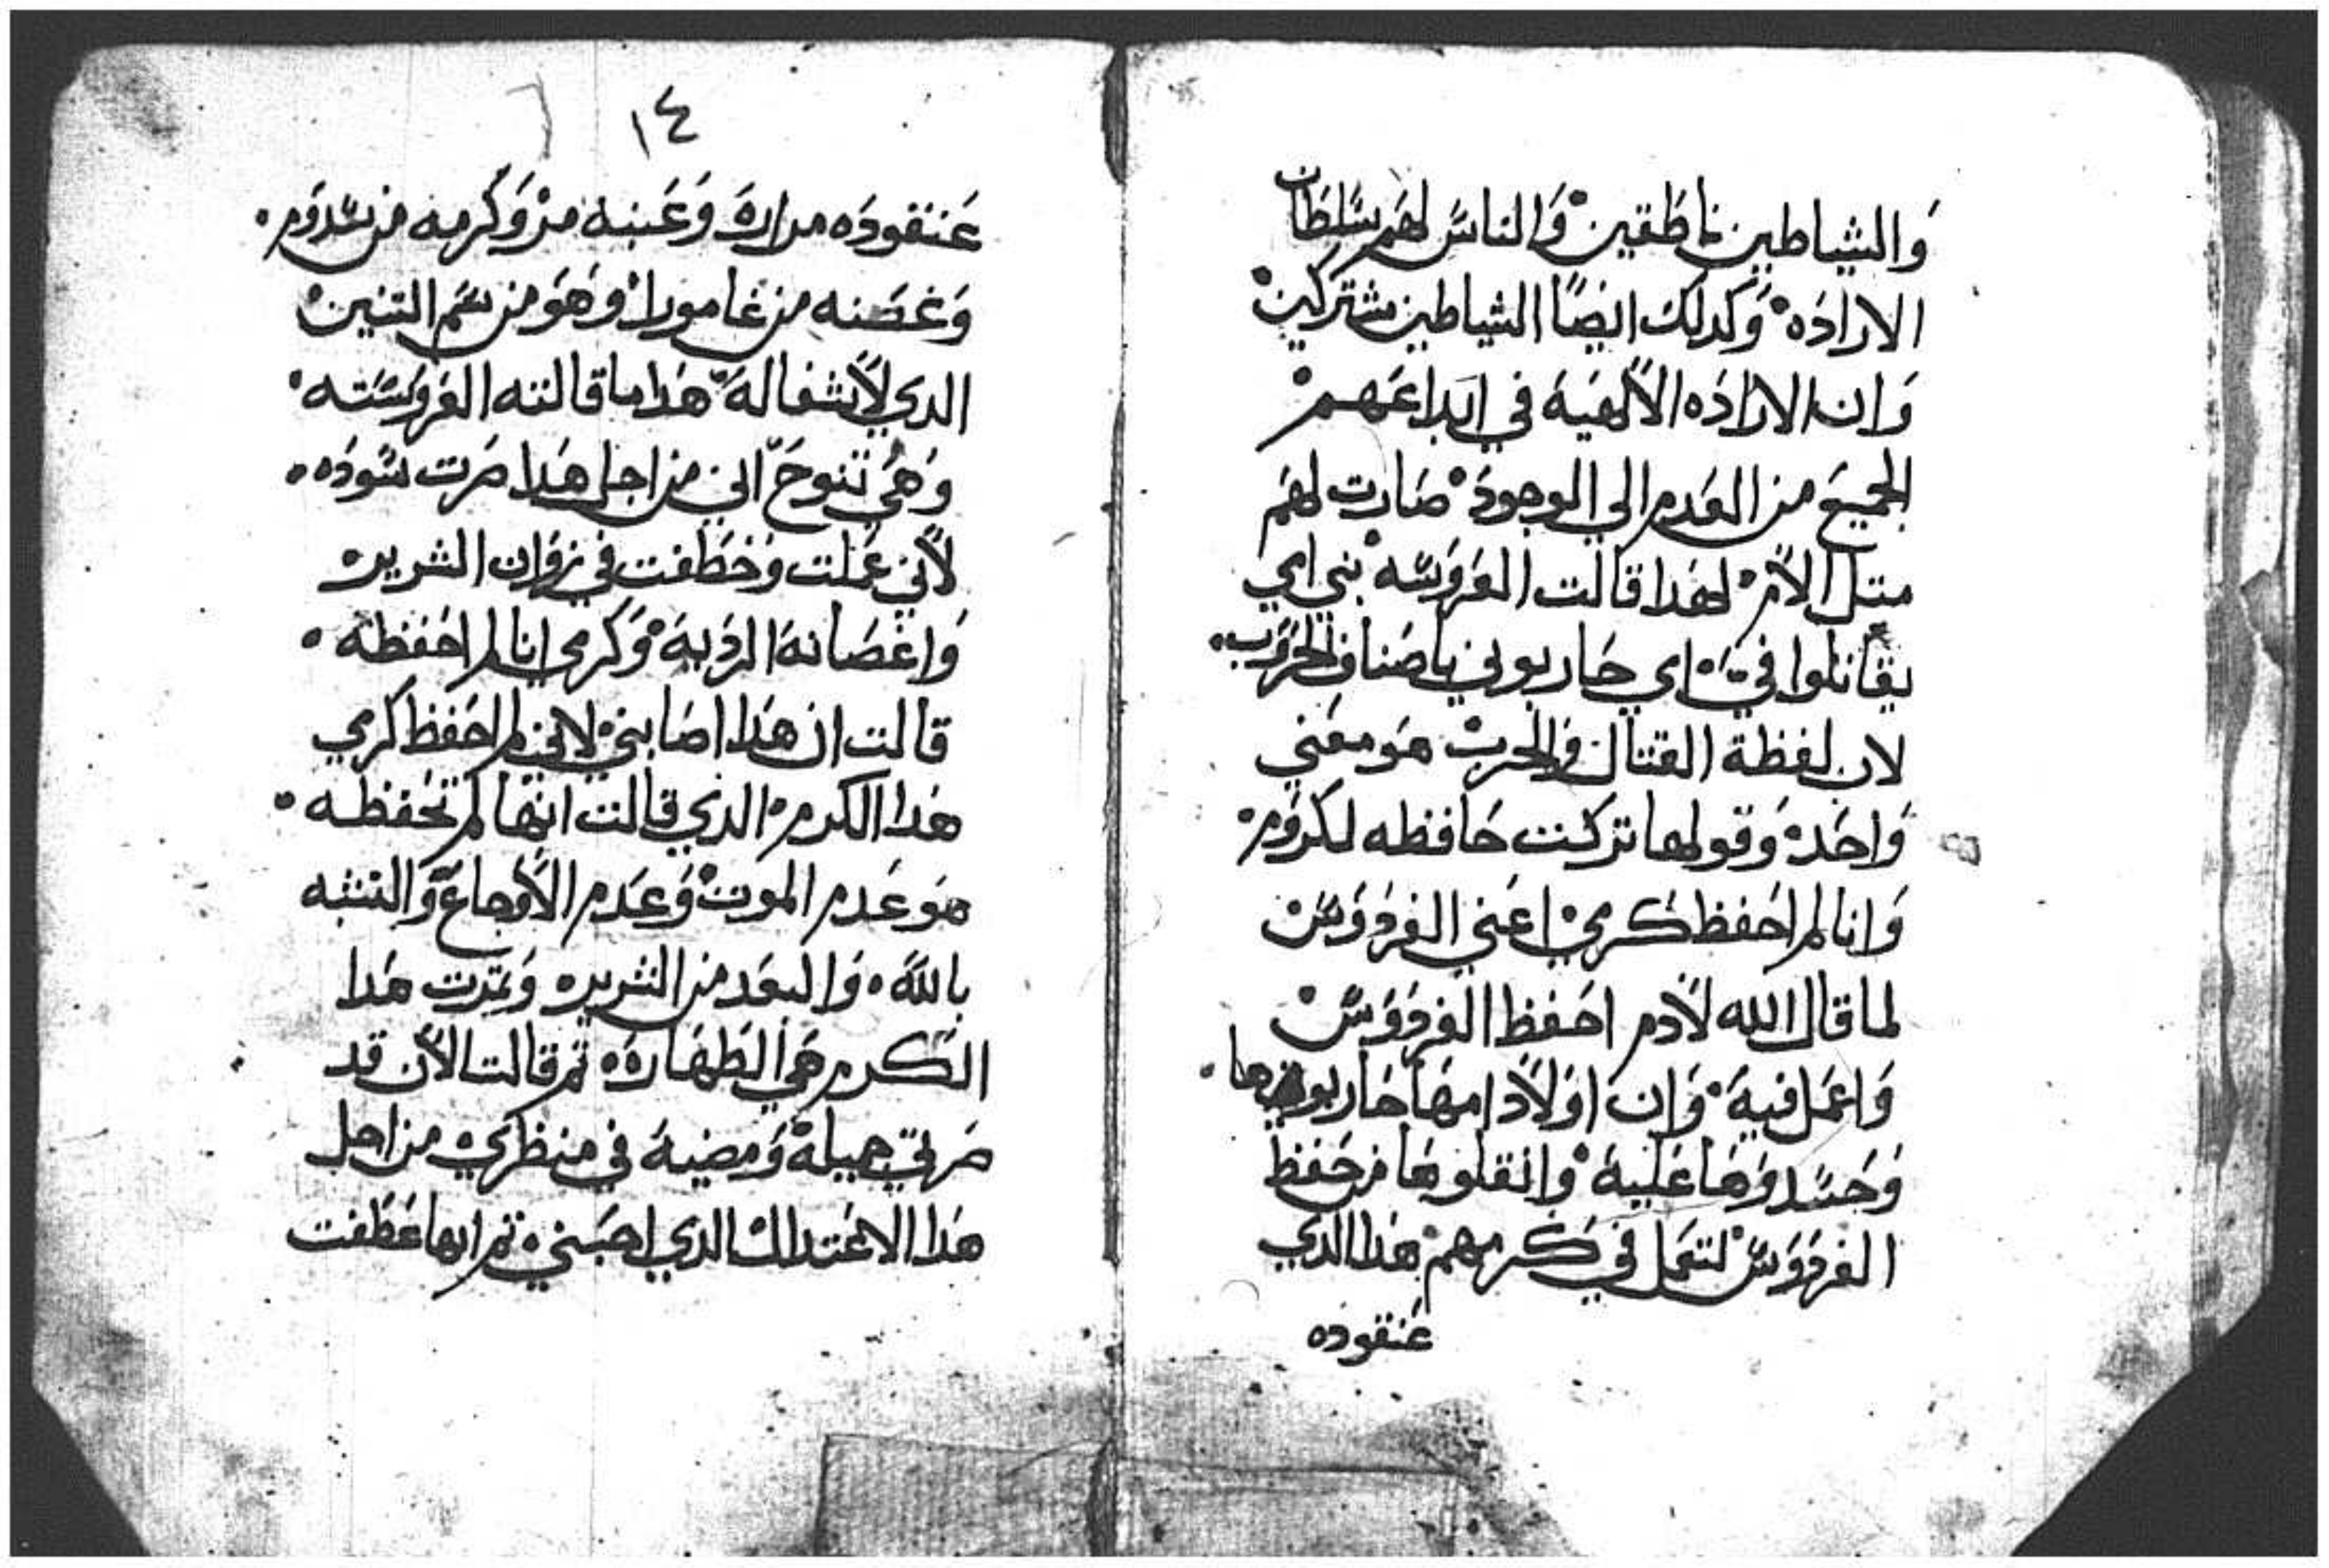 والشياطين ناطقين والناس لهم سلطان
الاراده وكدلك ايضًا الشياطين مشتركين
وان الاراده الالهية في ابداعهم
الجميع من العدم الي الوجود صارت لهم
متل الأم لهدا قالت العروسه بني امي
يقاتلوا في اي حاربوني باصناف الحروب
لان لفظة القتال والحرب هو معني
واحد وقولها تركت حافظه لكروم
وانا لم احفظ كرمي اعني الفردوس
لما قال الله لأدم احفظ الفردوس
واعمل فية وان اولاد امها حاربوها
وحسدوها علية وانقلوها من حفظ
الفردوس لتعمل في كرمهم هدا الدي
عنقوده
١٤
عنقوده مراره وعنبه مر وكرمه من سدوم
وغصنه من غامورا وهو من سم التنين
الدي لأشفا لة هدا ما قالته العروسته
وهي تنوح اني من اجل هدا صرت سوده
لأني عملت وخطفت في زوان الشرير
واغصانة الردية وكرمي انا لم احفظه
قالت ان هدا اصابني لاني لم احفظ كرمي
هدا الكرم الدي قالت انها لم تحفظه
هو عدم الموت وعدم الأوجاع والتشبه
بالله والبعد من الشرير وتمرت هدا
الكرم هي الطهارة تم قالت الأن قد
صرتي جميلة ومضية في منظرك من اجل
هدا الاعتدال الدي احبني تم انها عطفت